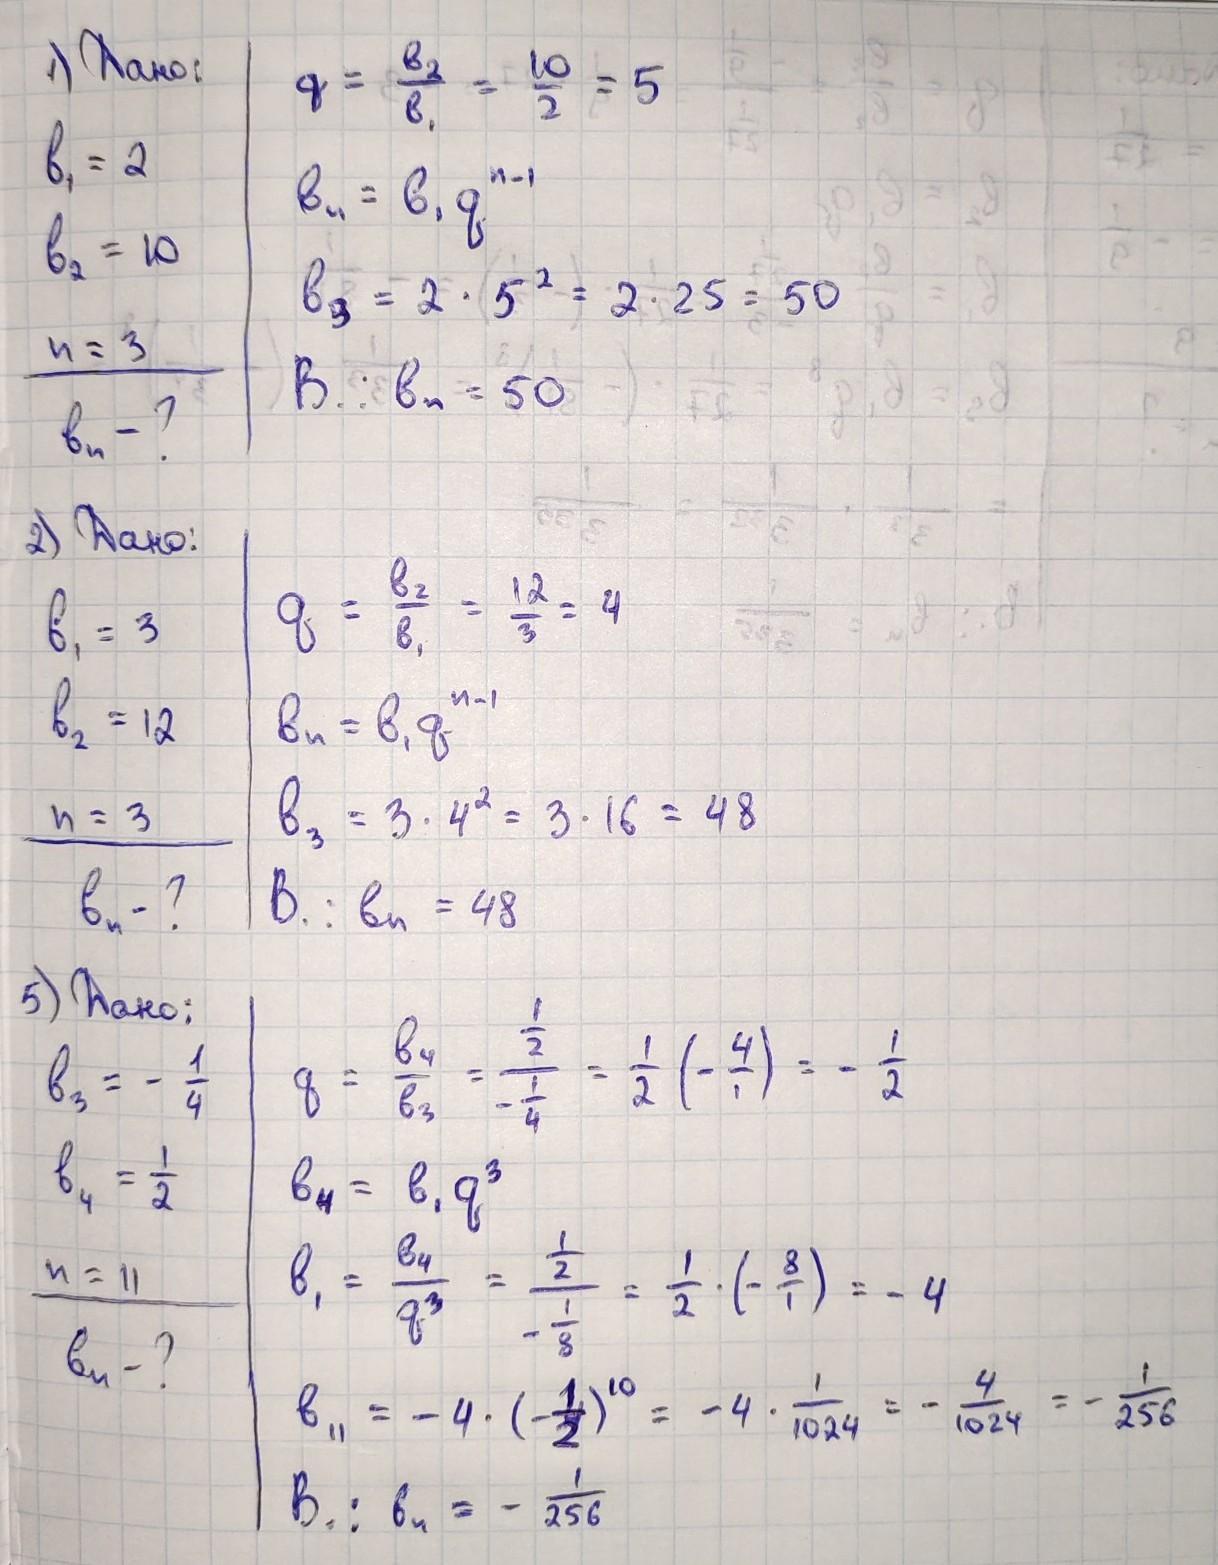 1) Дано:
в₁ = 2
в₂ = 10
n = 3
вₙ - ?
q = в₂/в₁ = 10/2 = 5
вₙ = в₁qⁿ⁻¹
в₃ = 2 · 5² = 2 · 25 = 50
В.: вₙ = 50
2) Дано:
в₁ = 3
в₂ = 12
n = 3
вₙ - ?
q = в₂/в₁ = 12/3 = 4
вₙ = в₁qⁿ⁻¹
в₃ = 3 · 4² = 3 · 16 = 48
В.: вₙ = 48
5) Дано:
в₃ = -1/4
в₄ = 1/2
n = 11
вₙ - ?
q = в₄/в₃ = (1/2)/(-1/4) = 1/2 (-4/1) = -1/2
в₄ = в₁q³
в₁ = в₄/q³ = (1/2)/(-1/8) = 1/2 · (-8/1) = -4
в₁₁ = -4 · (-1/2)¹⁰ = -4 · 1/1024 = -4/1024 = -1/256
В.: вₙ = -1/256